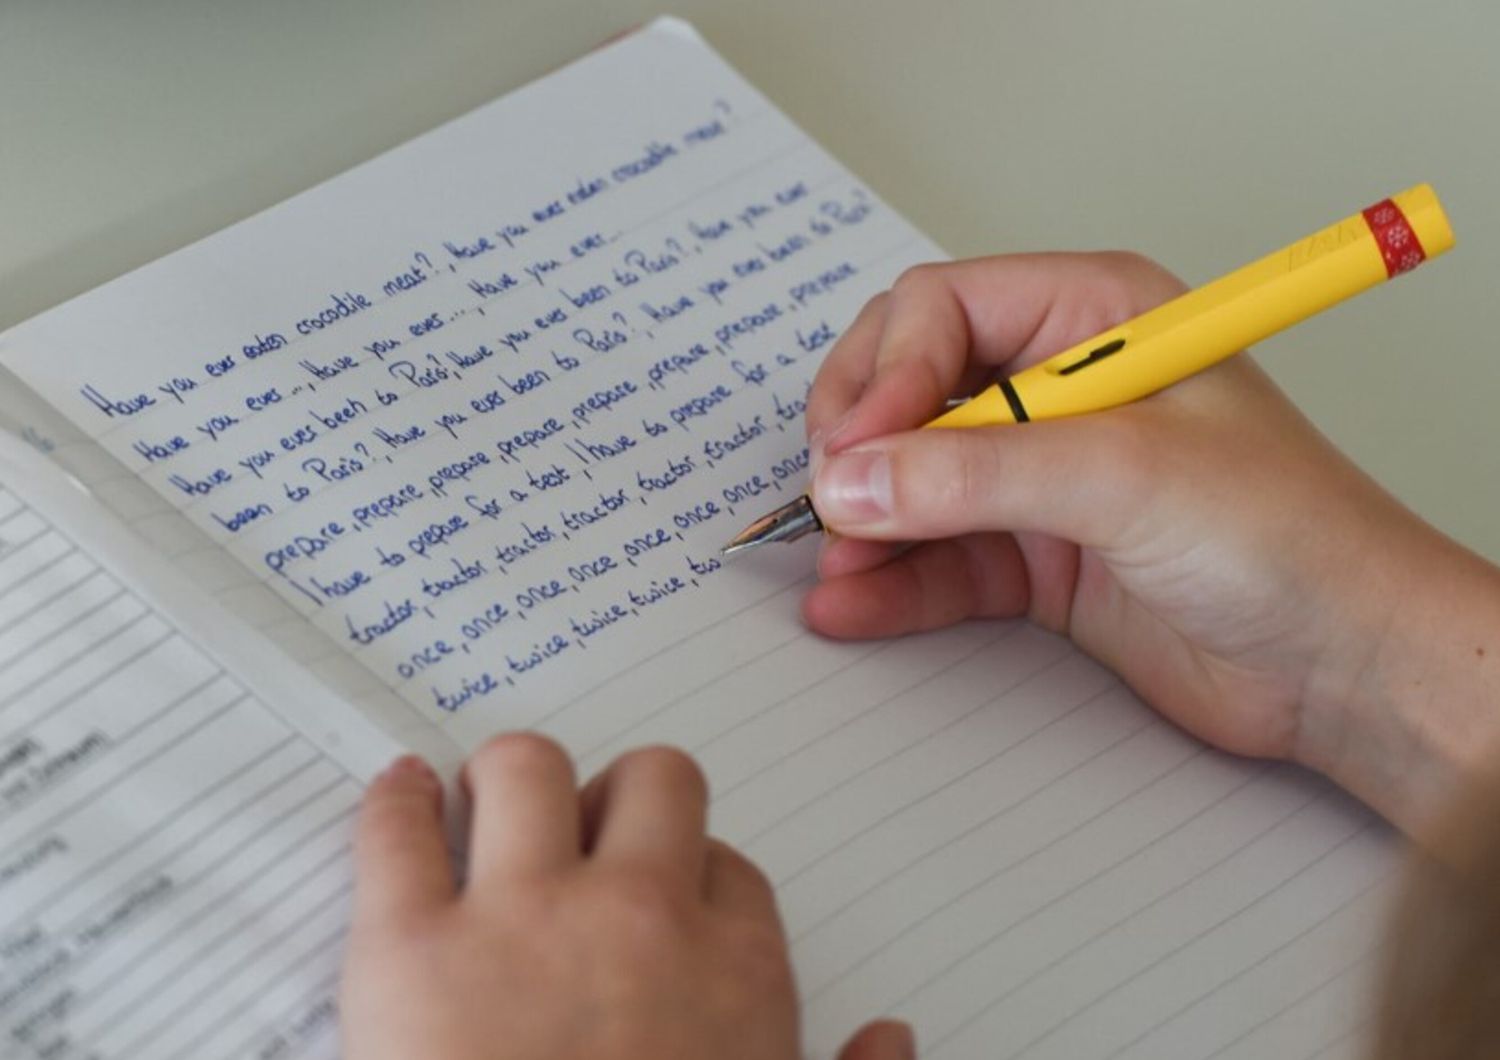 Have you ever eaten crocodile meat?, Have you ever eaten crocodile meat?
Have you ever..., Have you ever..., Have you ever...
Have you ever been to Paris?, Have you ever been to Paris?, Have you ever
been to Paris?, Have you ever been to Paris?, Have you ever been to Paris?
prepare, prepare, prepare, prepare, prepare, prepare, prepare, prepare
I have to prepare for a test, I have to prepare for a test
tractor, tractor, tractor, tractor, tractor, tractor, tra
once, once, once, once, once, once, once, once
twice, twice, twice, twice, tw